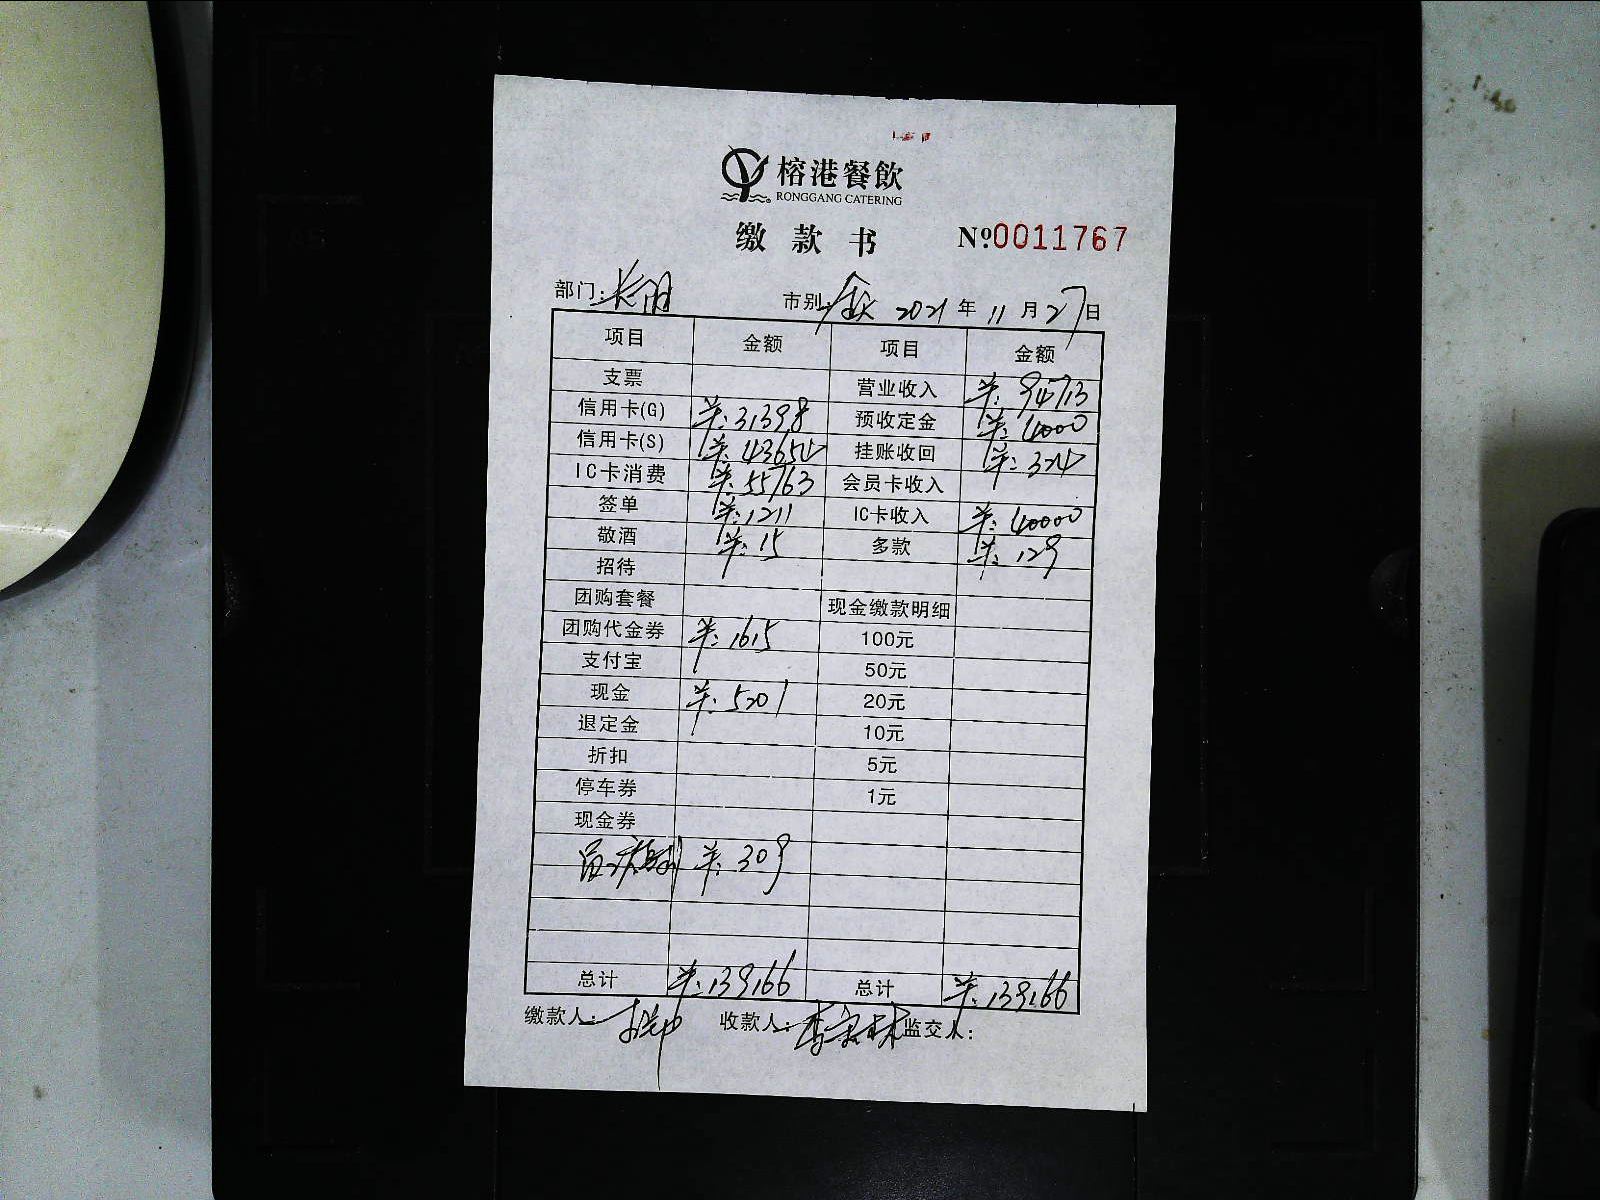 榕港餐飲
RONGGANG CATERING
缴款书 Nº0011767
部门: 市别: 全天 2021年11月27日
项目 金额 项目 金额
支票 营业收入 羊: 94713
信用卡(G) 羊: 31398 预收定金 羊: 4000
信用卡(S) 羊: 43654 挂账收回 羊: 324
IC卡消费 羊: 55763 会员卡收入
签单 羊: 1211 IC卡收入 羊: 40000
敬酒 羊: 15 多款 羊: 129
招待
团购套餐 现金缴款明细
团购代金券 羊: 1615 100元
支付宝 50元
现金 羊: 5201 20元
退定金 10元
折扣 5元
停车券 1元
现金券
羊: 309
总计 羊: 139166 总计 羊: 139166
缴款人: 收款人: 监交人: